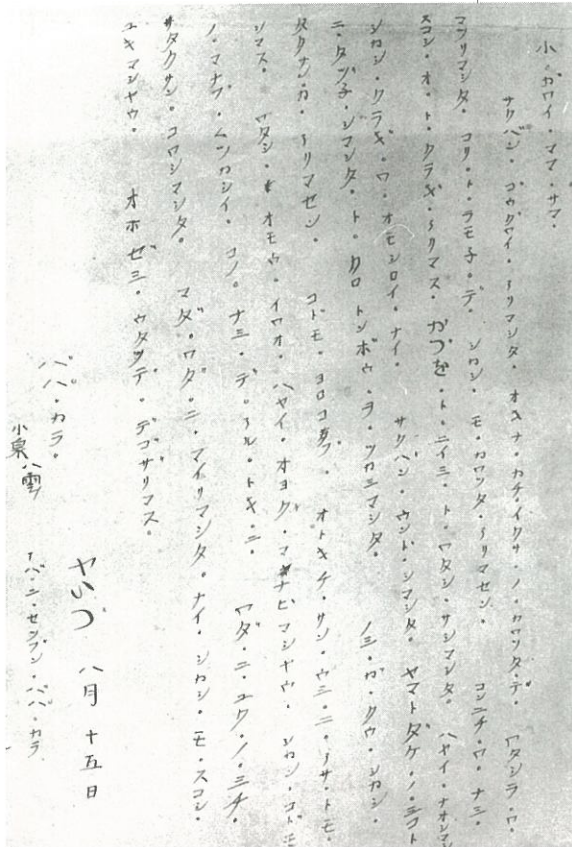 小・カワイ・ママ・サマ・
サクバン・ゴウグワイ・アリマシタ・オキナ・カチ・イクサ・ノ・カワッタ・デ・ワタシラ・ワ・
マツリマシタ・コリ・ト・ラモ子・デ・シカシ・モ・カワッタ・アリマセン・コンニチ・ワ・ナミ・
スコシ・オ・ト・クラゲ・アリマス・かつを・ト・ニイミ・ト・ワタシ・サシマシタ・ハヤイ・ナオシマシ
シカシ・クラゲ・ワ・オモシロイ・ナイ・サクバン・ウンドシマシタ・ヤマトダケ・ノ・ミコト
ニ・タヅ子・シマシタ・ト・クロ・トンボウ・ヲ・ツカミマシタ・ノミ・ガ・クウ・シカシ・
タクサン・カ・アリマセン・コドモ・ヨロコブ・オトキチ・サン・ウミ・ニ・アサ・トモ・
シマス・ワタシ・ト・オモウ・イワオ・ハヤイ・オヨグ・マナビマシヤウ・シカシ・コドモ
ノ・マナブ・ムツカシイ・コノ・ナミ・デ・アル・トキ・ニ・ワダ・ニ・ユク・ノ・ミチ・
サタクサン・コワシマシタ・マダ・ワダ・ニ・マイリマシタ・ナイ・シカシ・モ・スコシ・
ユキマシヤウ・オホゼミ・ウタッテ・デゴザリマス・
パパ・カラ・
小泉八雲
やいづ 八月 十五日
アバ・ニ・セップン・パパ・カラ